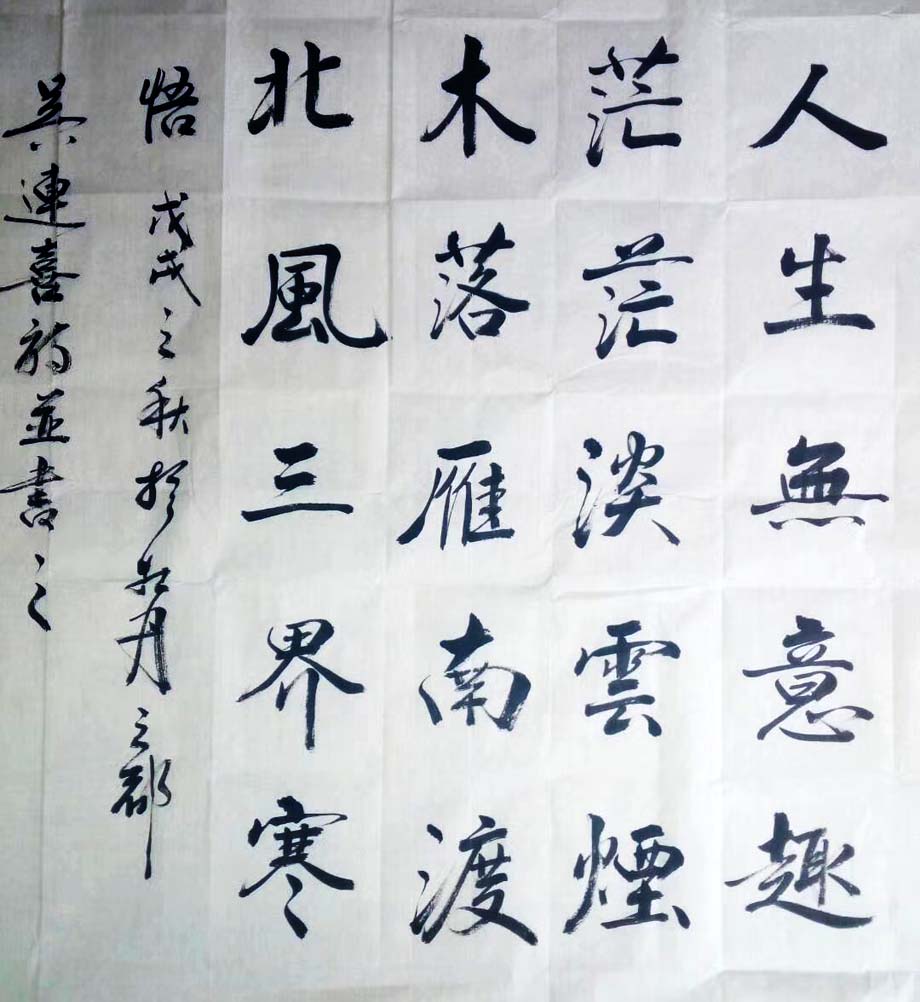 人生無意趣
茫茫淡雲煙
木落雁南渡
北風三界寒
悟 戊戌之秋於牡丹之都
吳連喜詩並書之